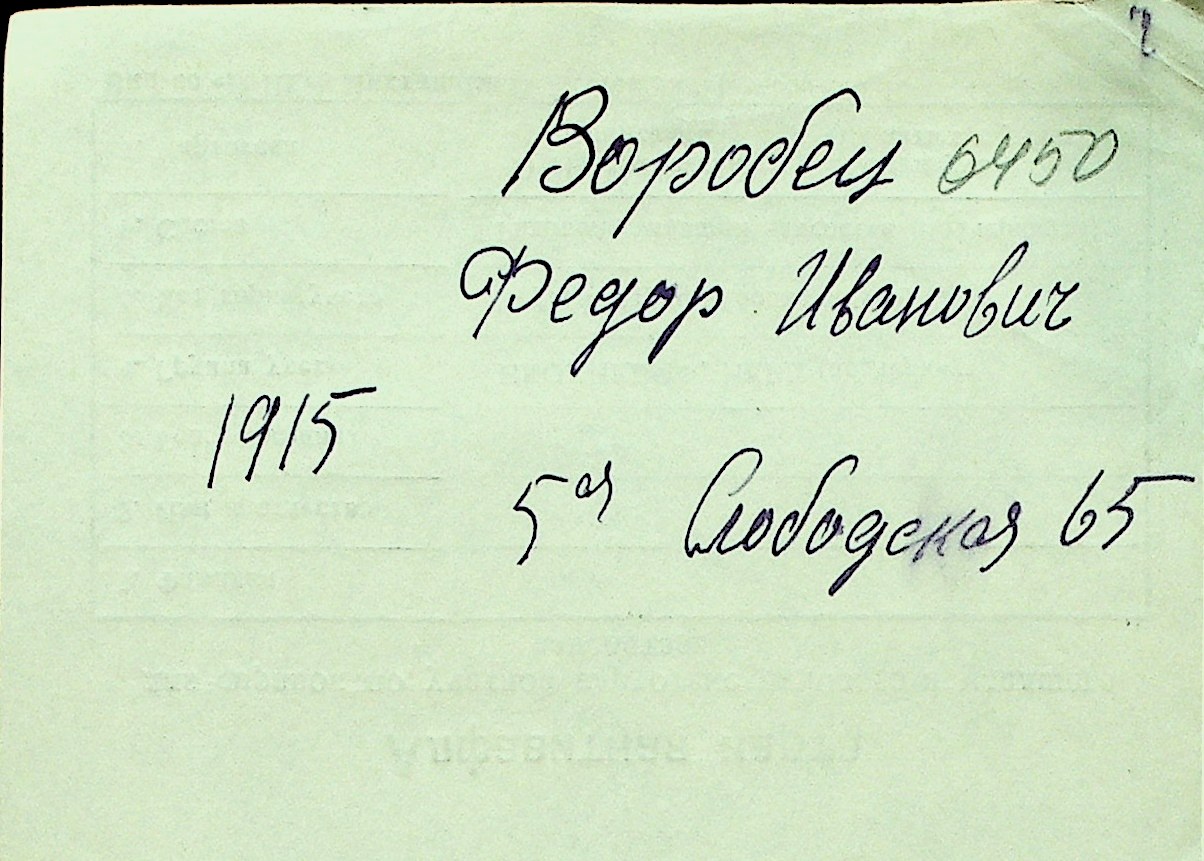 Воробец 6450
Федор Иванович
1915
5ая Слободская 65